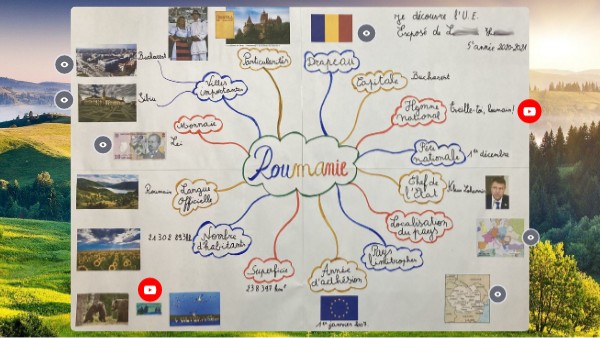 Je découvre l'U.E.
Exposé de
5e année 2020-2021
Particularités
Drapeau
Bucarest
Villes
importantes
Capitale
Bucharest
Sibiu
Hymne
national
Monnaie
Lei
Fête
nationale
1er décembre
Roumanie
Roumain
Langue
officielle
Chef de
l'État
Klaus
Nombre
d'habitants
Localisation
du pays
Pays
limitrophes
Superficie
238 397 km²
Année
d'adhésion
1er janvier 2007